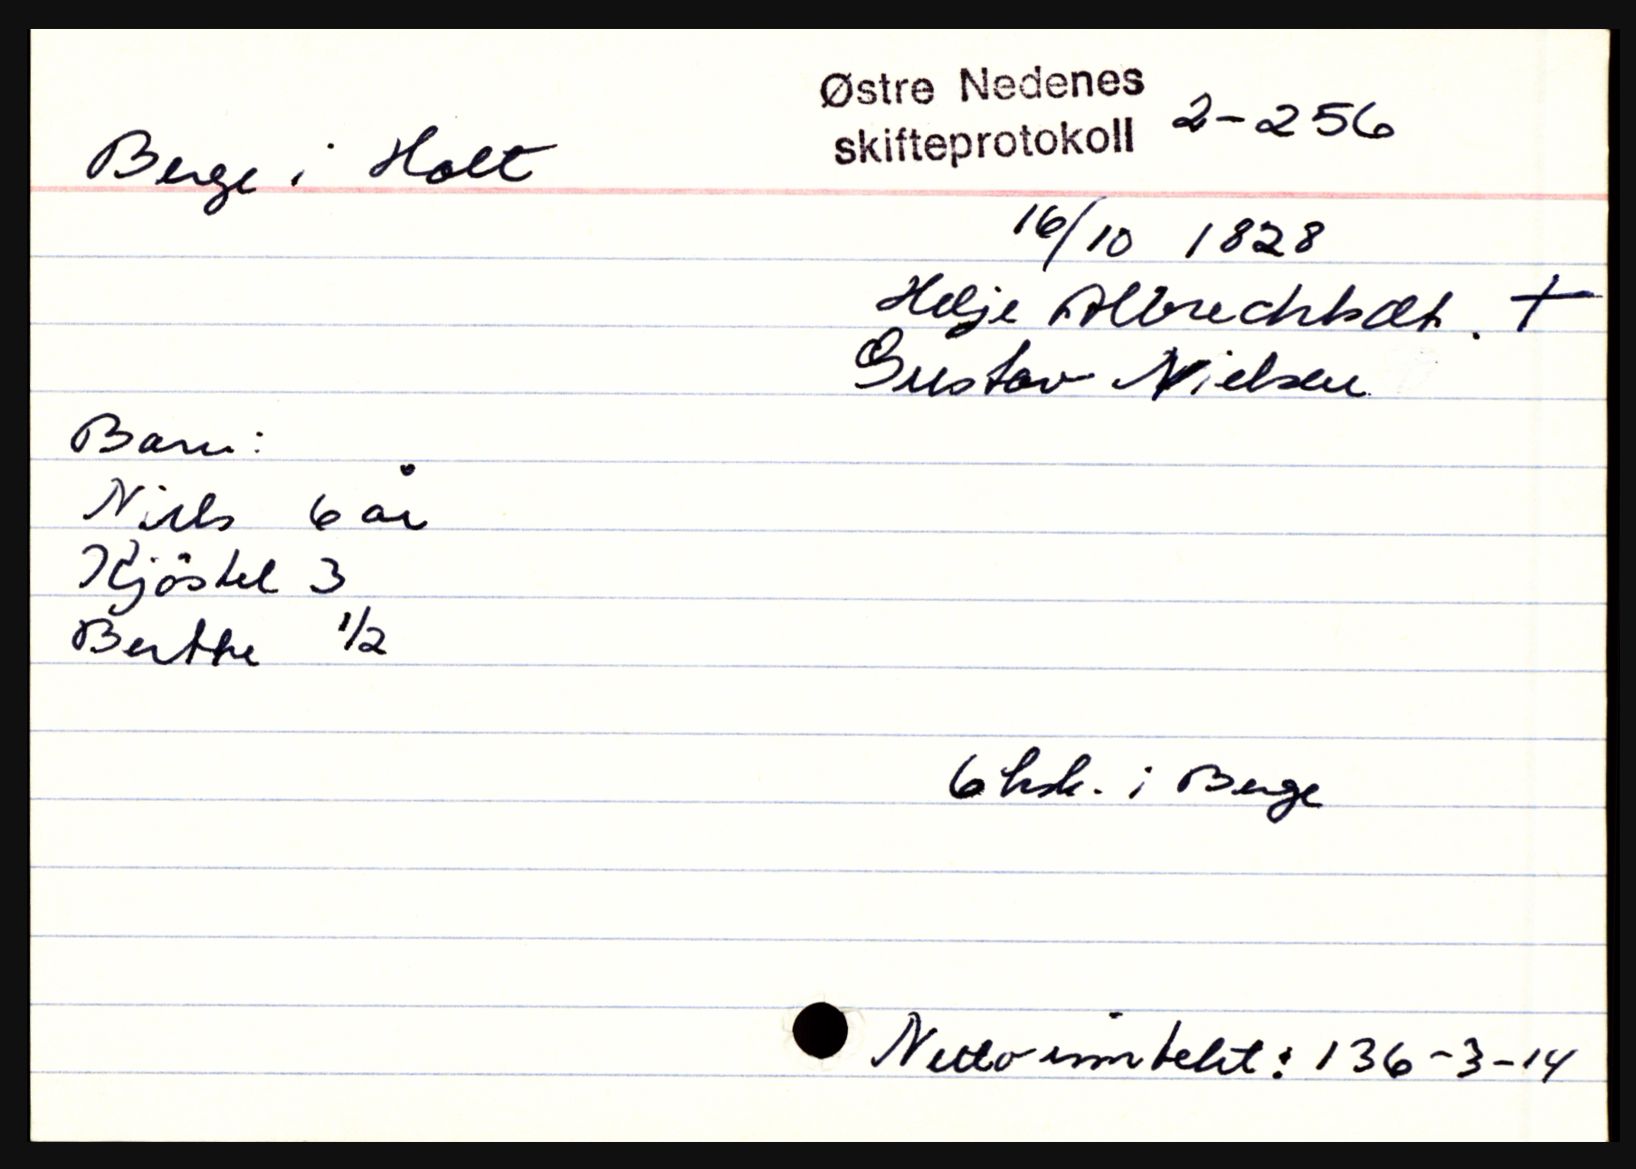 Østre Nedenes
skifteprotokoll 2-256
Berge i Holt
16/10 1828
Helje Albrechtsdt. +
Gustav Nielsen
Barn:
Niels 6 år
Kjöstel 3
Berthe 1/2
6 hsk. i Berge
Netto inntekt: 136-3-14